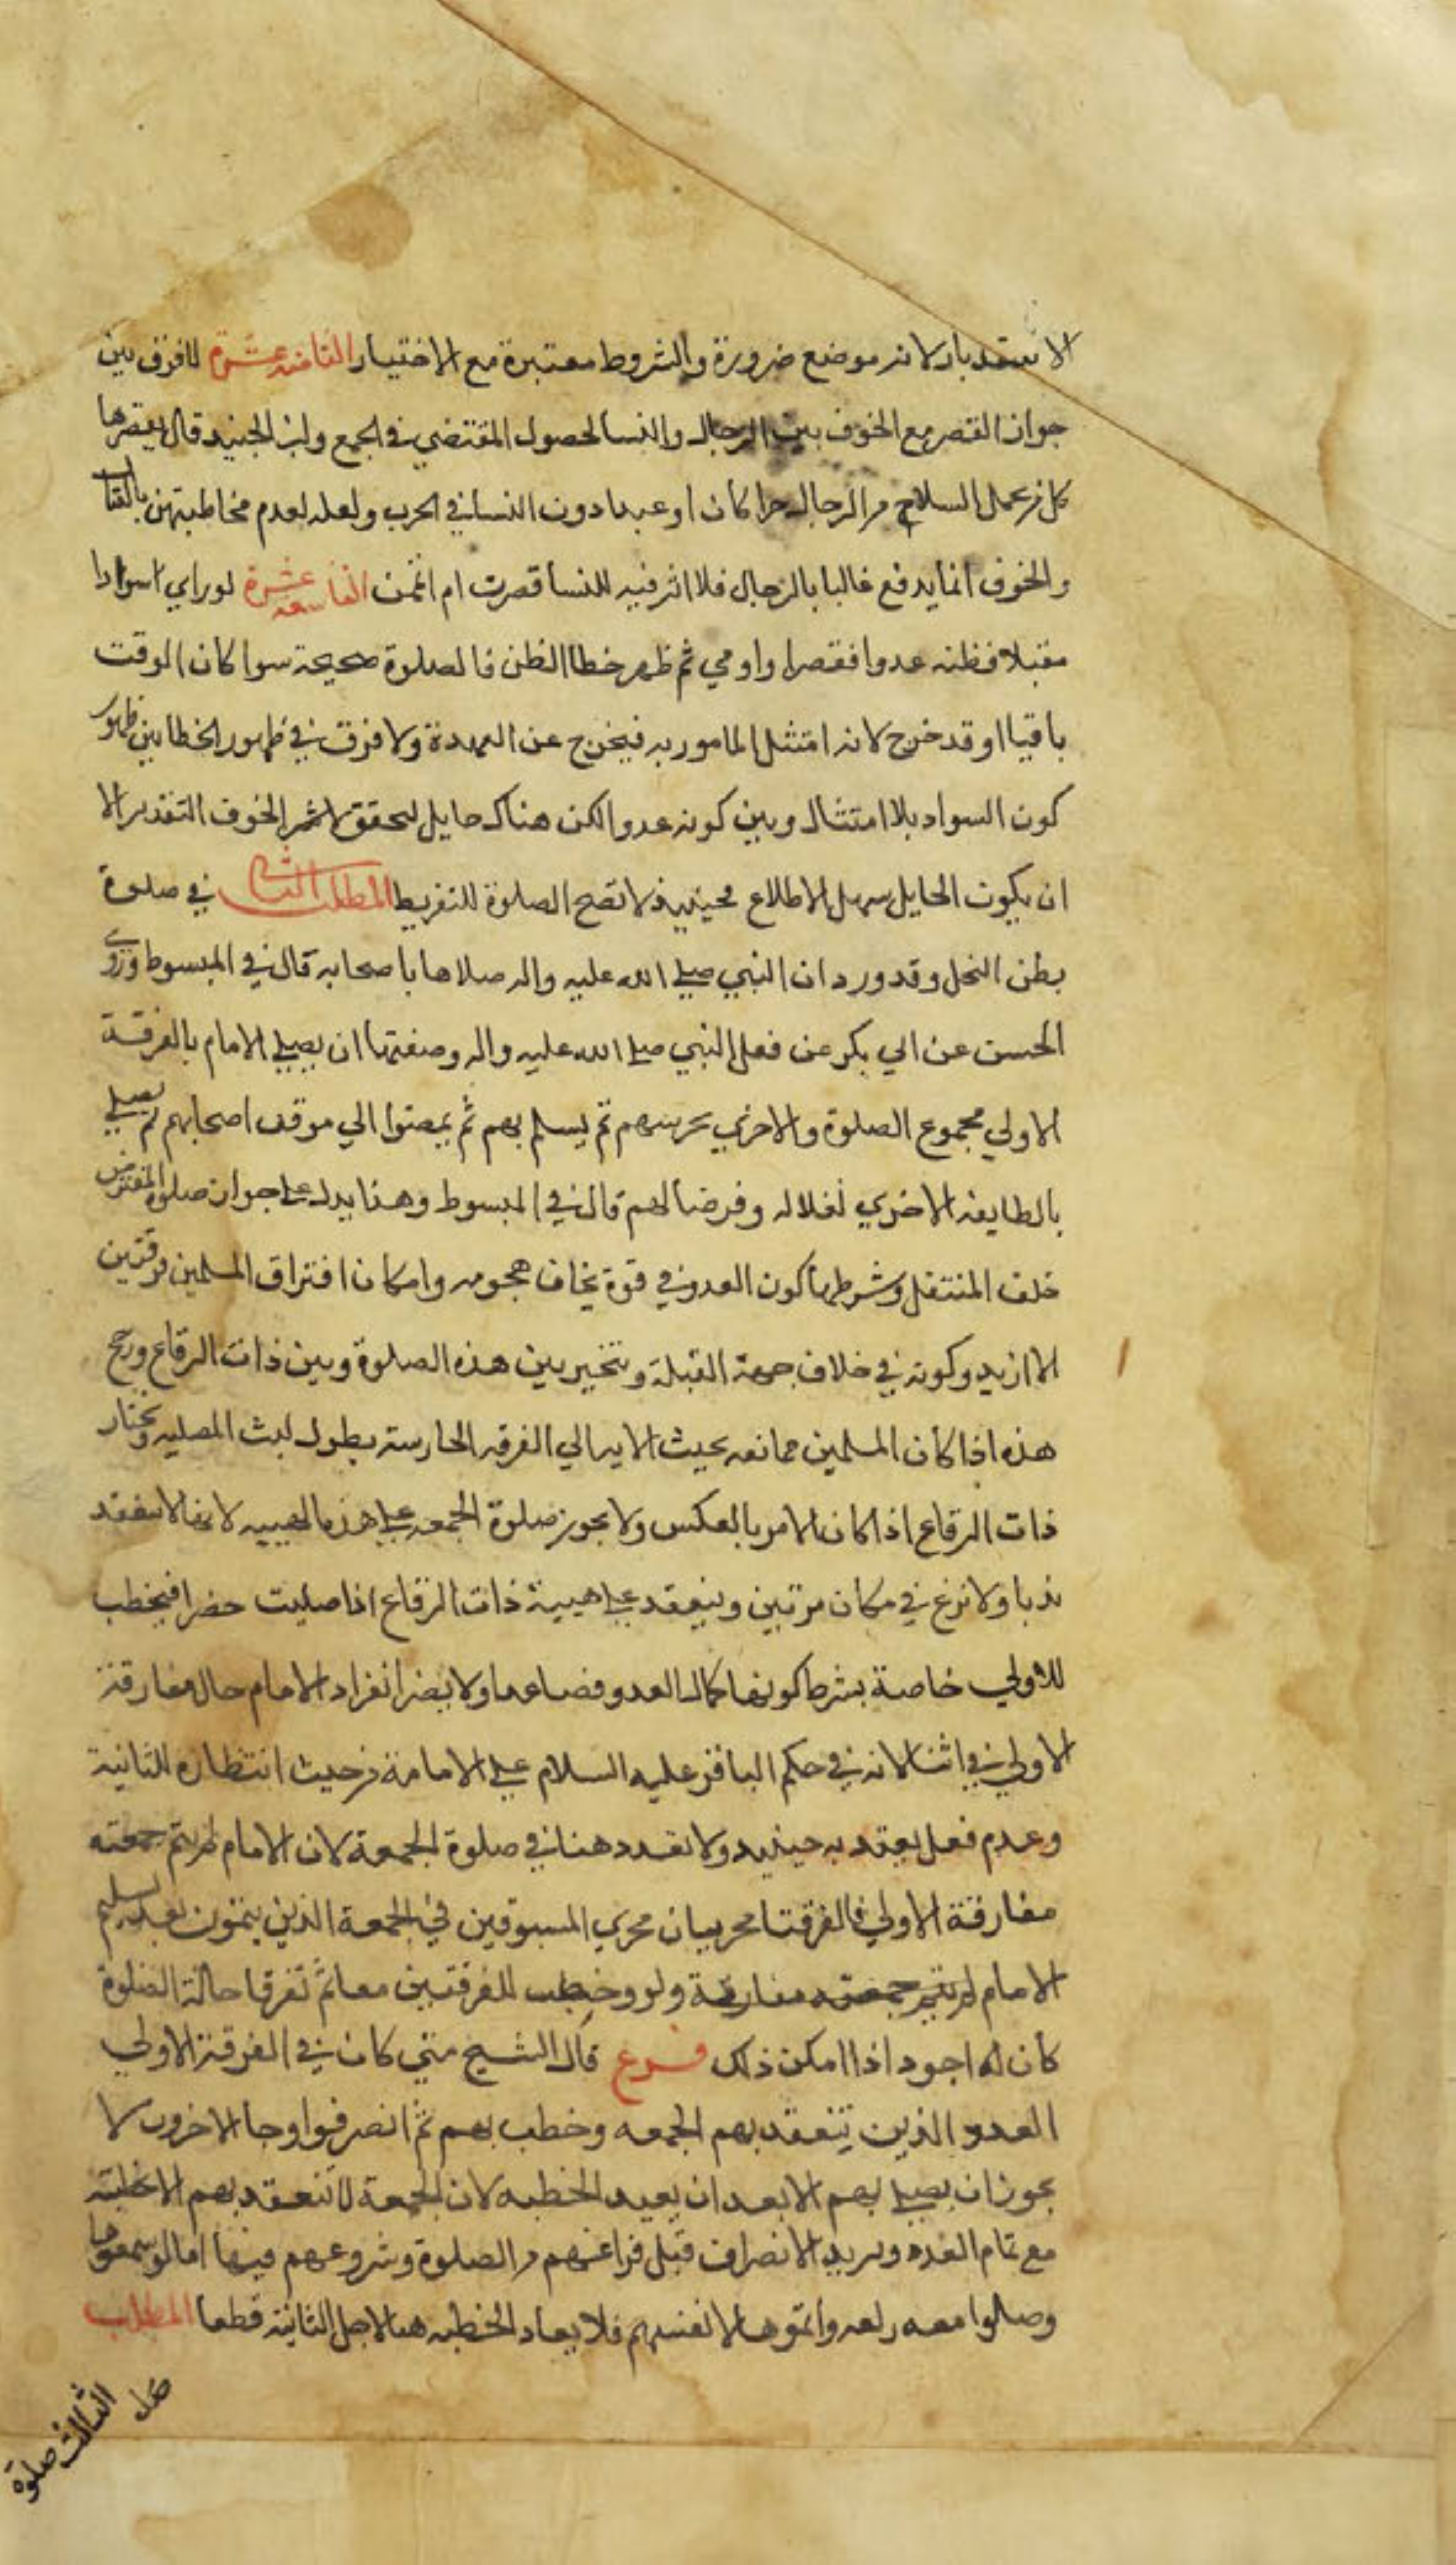 لانعقد بار لانه موضع ضرورة والشروط معتبرة مع الاختيار الثامنه عشرة لافرق بين
جواز القصر مع الخوف بين الرجال والنسا لحصول المقتضي في الجمع وابن الجنيد قال يقصرها
كل من يحمل السلاح من الرجال حرا كان او عبدا دون النسا في الحرب ولعله لعدم مخاطبتهن بالقتال
والخوف انما يدفع غالبا بالرجال فلا اثر فيه للنسا قصرت ام اتممن التاسعه عشرة لو راي اسوادا
مقبلا فظنه عدوا فقصر او اومي ثم ظهر خطا الظن فالصلوة صحيحة سوا كان الوقت
باقيا او قد خرج لانه امتثل المامور به فيخرج عن العهدة ولا فرق في ظهور الخطا بين ظهور
كون السواد بلا امتثال وبين كونه عدوا لكن هناك حايل لتحقق الخوف التقدير الا
ان يكون الحايل سهل الاطلاع فحينيذ لا تصح الصلوة للتفريط المطلب الثاني في صلوة
بطن النخل وقد ورد ان النبي صلي الله عليه واله صلاها باصحابه قال في المبسوط وروي
الحسن عن ابي بكر عن فعل النبي صلي الله عليه واله وصفتها ان يصلي الامام بالفرقة
الاولي مجموع الصلوة والاخري تحرسهم ثم يسلم بهم ثم يمضوا الي موقف اصحابهم ثم يصلي
بالطايفه الاخري نفلا له وفرضا لهم قال في المبسوط وهذا يدل علي جواز صلوة المفترض
خلف المنتفل وشرطها كون العدو في قوة يخاف هجومه وامكان افتراق المسلمين فرقتين
لا ازيد وكونه في خلاف جهة القبلة ويتخير بين هذه الصلوة وبين ذات الرقاع ورجح
هذه اذا كان المسلمين ممانعه بحيث لا يبالي الفرقه الحارسة بطول لبث المصليه ويختار
ذات الرقاع اذا كان الامر بالعكس ولا يجوز صلوة الجمعه علي هذه الهييه لانها لا تنعقد
ندبا ولا تزع في مكان مرتين وينعقد علي هيية ذات الرقاع اذا صليت حضرا فيخطب
للاولي خاصة بشرط كونها كمال العدد فصاعدا ولا يضر انفراد الامام حال مفارقة
الاولي في اثنا لانه في حكم الباقي عليه السلام علي الامامة من حيث انتظاره للثانية
وعدم فعل يعتد به حينيد ولا تعدد هنا في صلوة الجمعة لان الامام لم يتم جمعته
مفارقة الاولي فالفرقتا تجريان مجري المسبوقين في الجمعة الذين يتمون بعد تسليم
الامام لم يتم جمعته مفارقة ولو وخطب للفرقتين معا ثم تفرقا حالة الصلوة
كان له اجود اذا امكن ذلك فرع قال الشيخ متي كان في الفرقة الاولي
العدو الذين تنعقد بهم الجمعه وخطب بهم ثم انصرفوا وجا الاخرون لا
يجوز ان يصلي بهم الا بعد ان يعيد الخطبه لان الجمعة لا تنعقد بهم الا بخطبته
مع تمام العدد ويريد الانصراف قبل فراغهم من الصلوة وشروعهم فيها اما لو سمعوها
وصلوا معه ركعه واتموها لانفسهم فلا يعاد الخطبه هنا لاجل الثانية قطعا المطلب
الثالث صلوة